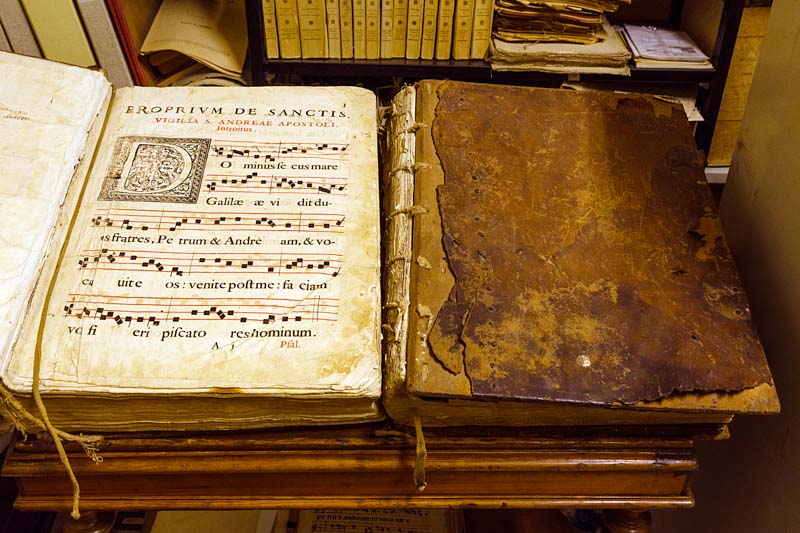 PROPRIVM DE SANCTIS.
1
VIGILIA S. ANDREAE APOSTOLI.
Introitus.
D O minus se cus mare
Galilæ æ vi dit du-
os fratres, Pe trum & Andre am, & vo-
ca uit e os: venite post me: fa ciam
vos fi eri piscato res hominum.
A j
Psal.